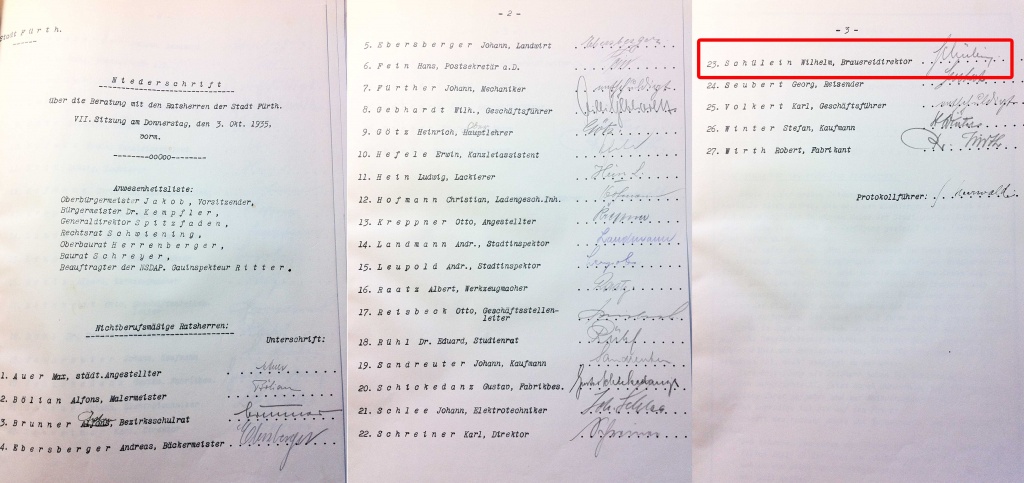 Stadt Fürth.
Niederschrift
über die Beratung mit den Ratsherren der Stadt Fürth.
VII. Sitzung am Donnerstag, den 3. Okt. 1935,
vorm.
--------oo0oo--------
Anwesenheitsliste:
Oberbürgermeister Jakob, Vorsitzender,
Bürgermeister Dr. Kempfler,
Generaldirektor Spitzfaden,
Rechtsrat Schwiening,
Oberbaurat Herrenberger,
Baurat Schreyer,
Beauftragter der NSDAP. Gauinspekteur Ritter.
Nichtberufsmäßige Ratsherren:
Unterschrift:
1. Auer Max, städt.Angestellter
2. Bölian Alfons, Malermeister
3. Brunner, Bezirksschulrat
4. Ebersberger Andreas, Bäckermeister
- 2 -
5. Ebersberger Johann, Landwirt
6. Fein Hans, Postsekretär a.D.
7. Fürther Johann, Mechaniker
8. Gebhardt Wilh., Geschäftsführer
9. Götz Heinrich, Hauptlehrer
10. Hefele Erwin, Kanzleiassistent
11. Hein Ludwig, Lackierer
12. Hofmann Christian, Ladengesch.Inh.
13. Kreppner Otto, Angestellter
14. Landmann Andr., Stadtinspektor
15. Leupold Andr., Stadtinspektor
16. Raatz Albert, Werkzeugmacher
17. Reisbeck Otto, Geschäftsstellen-
leiter
18. Rühl Dr. Eduard, Studienrat
19. Sandreuter Johann, Kaufmann
20. Schickedanz Gustav, Fabrikbes.
21. Schlee Johann, Elektrotechniker
22. Schreiner Karl, Direktor
- 3 -
23. Schülein Wilhelm, Brauereidirektor
24. Seubert Georg, Reisender
25. Volkert Karl, Geschäftsführer
26. Winter Stefan, Kaufmann
27. Wirth Robert, Fabrikant
Protokollführer: